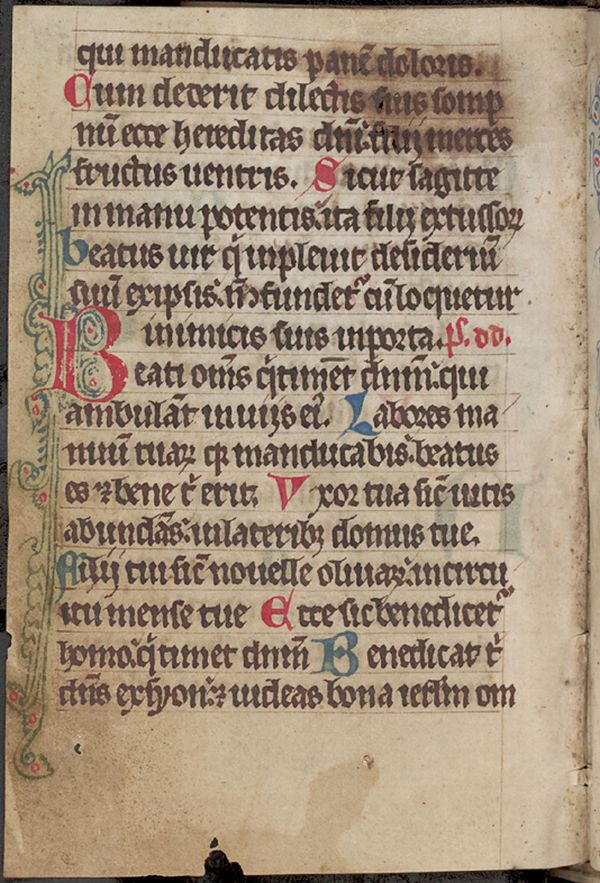 qui manducatis panē doloris.
Cum dederit dilectis suis somp
nū ecce hereditas dm̄: filij merces
fructus uentris. Sicut sagitte
in manu potentis: ita filij excussoꝝ
beatus uir qͥ inpleuit desideriū
suū ex ipsis: nō confundet᷑ cū loquetur
inimicis suis in porta. ps. dd.
Beati om̄s qͥ timēt dnm̄: qui
ambulāt in uijs eiꝰ. Labores ma
nuū tuaꝝ qꝛ manducabis: beatus
es ⁊ bene t̄ erit. Vxor tua sic̄ uitis
abundās: in lateribꝫ domus tue.
Filij tui sic̄ nouelle oliuaꝝ: in circu
itu mense tue Ecce sic benedicet᷑
homo: qͥ timet dnm̄ Benedicat t̄
dn̄s ex syon: ⁊ uideas bona ierl̄m om